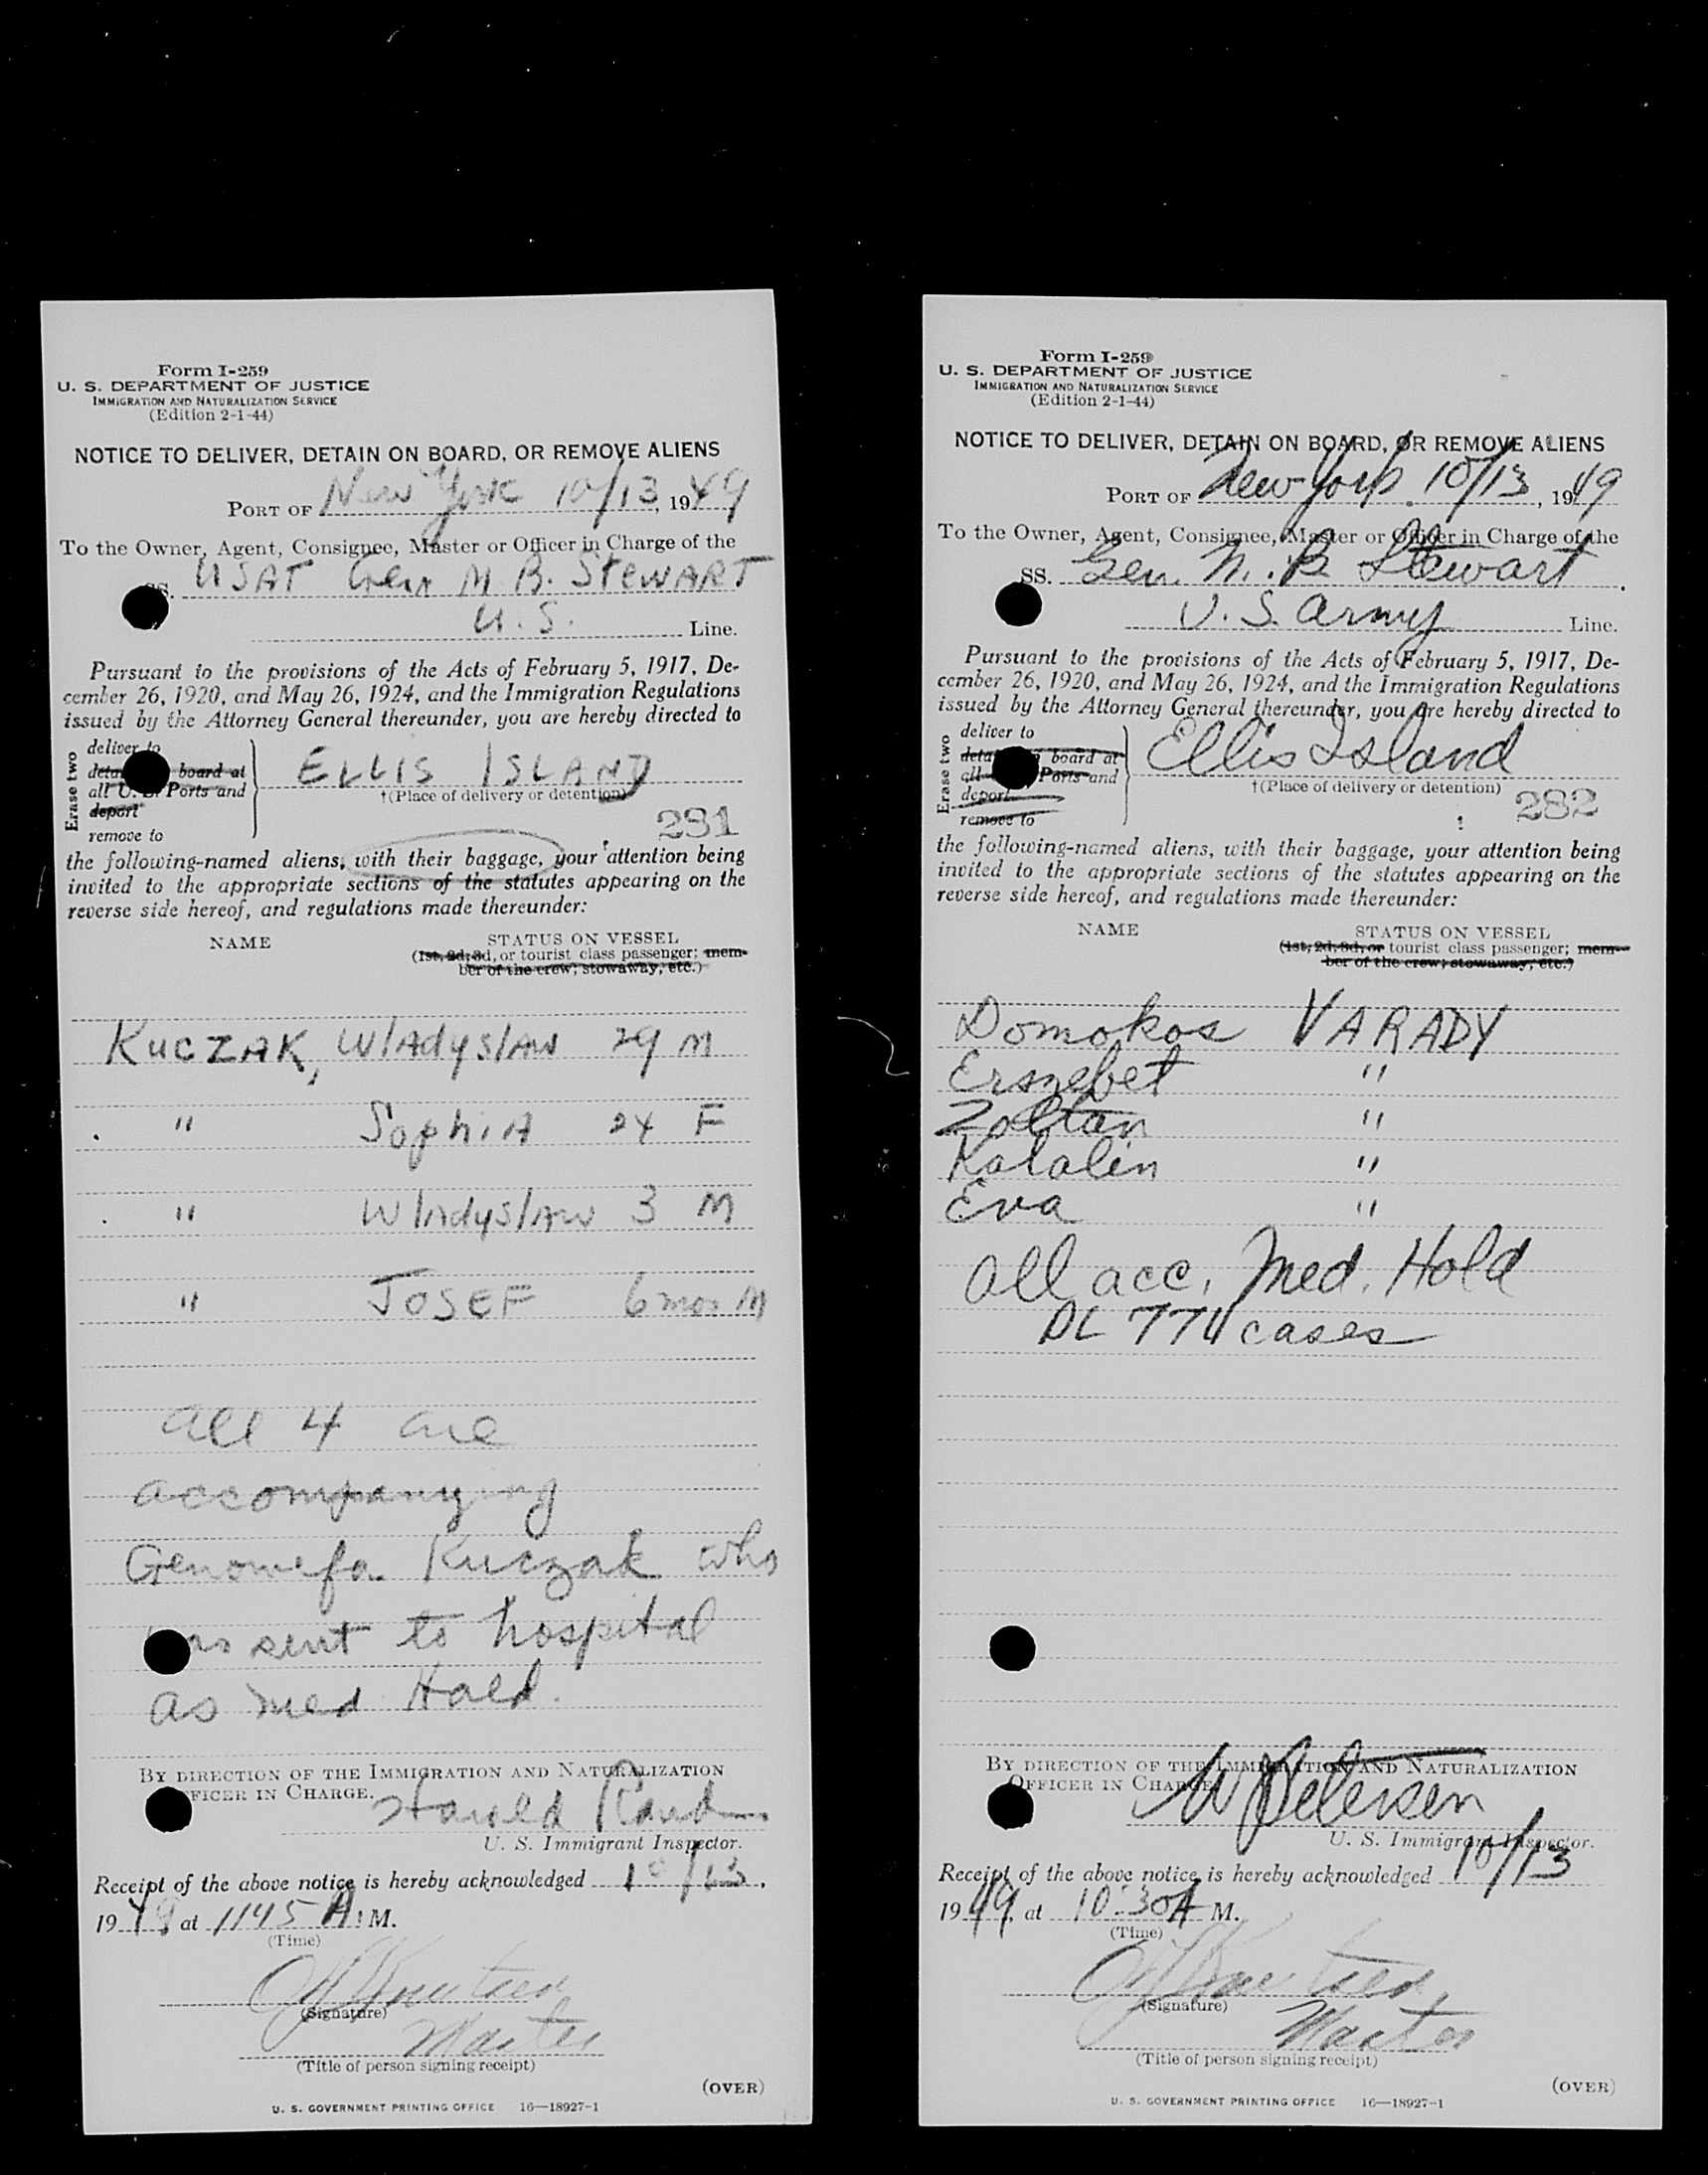 Form I-259
U. S. DEPARTMENT OF JUSTICE
IMMIGRATION AND NATURALIZATION SERVICE
(Edition 2-1-44)
NOTICE TO DELIVER, DETAIN ON BOARD, OR REMOVE ALIENS
PORT OF New York 10/13, 1949
To the Owner, Agent, Consignee, Master or Officer in Charge of the
SS. USAT Gen M. B. STEWART
U. S. Line.
Pursuant to the provisions of the Acts of February 5, 1917, De-
cember 26, 1920, and May 26, 1924, and the Immigration Regulations
issued by the Attorney General thereunder, you are hereby directed to
Erase two
deliver to
board at
all U. S. Ports and
deport
remove to
ELLIS ISLAND
†(Place of delivery or detention)
281
the following-named aliens, with their baggage, your attention being
invited to the appropriate sections of the statutes appearing on the
reverse side hereof, and regulations made thereunder:
NAME STATUS ON VESSEL
(1st, 2d, 3d, or tourist class passenger; mem-
ber of the crew; stowaway, etc.)
KUCZAK, Wladyslaw 29 M
" Sophia 24 F
" Wladyslaw 3 M
" JOSEF 6 mos M
All 4 are
accompanying
Genowefa Kuczak who
was sent to hospital
as med Hold.
BY DIRECTION OF THE IMMIGRATION AND NATURALIZATION
OFFICER IN CHARGE.
Harold
U. S. Immigrant Inspector.
Receipt of the above notice is hereby acknowledged 10/13,
1949, at 1145 A. M.
(Time)
Knutsen
(Signature)
Master
(Title of person signing receipt)
(OVER)
U. S. GOVERNMENT PRINTING OFFICE 16—18927-1
Form I-259
U. S. DEPARTMENT OF JUSTICE
IMMIGRATION AND NATURALIZATION SERVICE
(Edition 2-1-44)
NOTICE TO DELIVER, DETAIN ON BOARD, OR REMOVE ALIENS
PORT OF New York 10/13, 1949
To the Owner, Agent, Consignee, Master or Officer in Charge of the
SS. Gen. M. B. Stewart
U. S. Army Line.
Pursuant to the provisions of the Acts of February 5, 1917, De-
cember 26, 1920, and May 26, 1924, and the Immigration Regulations
issued by the Attorney General thereunder, you are hereby directed to
Erase two
deliver to
board at
all Ports and
deport
remove to
Ellis Island
†(Place of delivery or detention)
282
the following-named aliens, with their baggage, your attention being
invited to the appropriate sections of the statutes appearing on the
reverse side hereof, and regulations made thereunder:
NAME STATUS ON VESSEL
(1st, 2d, 3d, or tourist class passenger; mem-
ber of the crew; stowaway, etc.)
Domokos VARADY
Erszebet "
Zoltan "
Katalin "
Eva "
All acc. Med. Hold
DL 774 cases
BY DIRECTION OF THE IMMIGRATION AND NATURALIZATION
OFFICER IN CHARGE
W Petersen
U. S. Immigrant Inspector.
Receipt of the above notice is hereby acknowledged 10/13
1949, at 10:30 A M.
(Time)
Knutsen,
(Signature)
Master
(Title of person signing receipt)
(OVER)
U. S. GOVERNMENT PRINTING OFFICE 16—18927-1